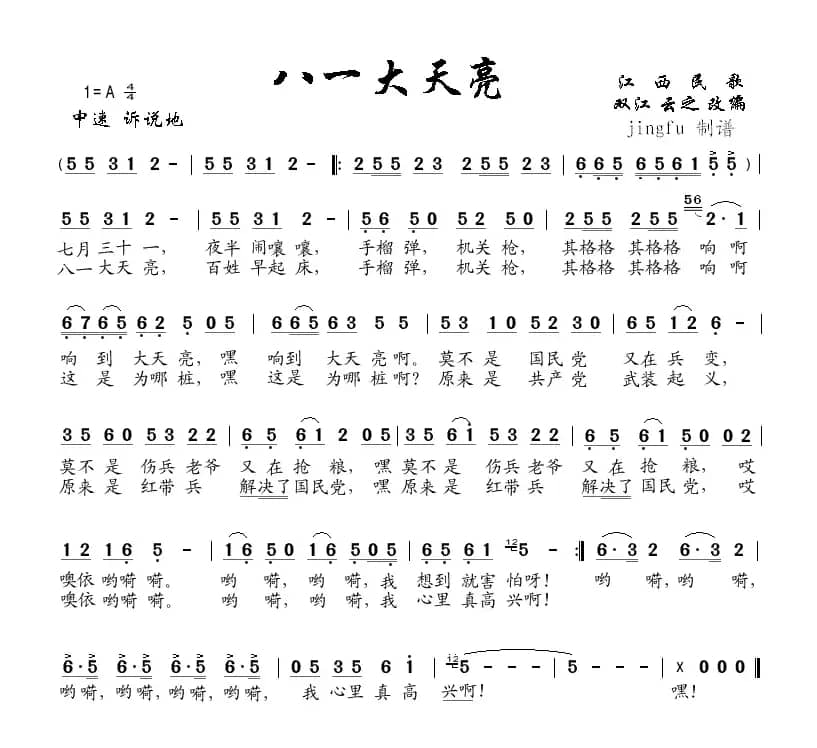 八一大天亮
1=A 4/4
江西民歌
中速 诉说地
双江 云之 改编
jingfu 制谱
( 5 5 3 1 2 - | 5 5 3 1 2 - ‖: 2 5 5 2 3 2 5 5 2 3 | 6 6 5 6 5 6 1 5 5 ) |
5 5 3 1 2 - | 5 5 3 1 2 - | 5 6 5 0 5 2 5 0 | 2 5 5 2 5 5 56 2 · 1 |
七月 三十 一， 夜半 闹嚷 嚷， 手榴 弹， 机关 枪， 其格格 其格格 响 啊
八一 大天 亮， 百姓 早起 床， 手榴 弹， 机关 枪， 其格格 其格格 响 啊
6 7 6 5 6 2 5 0 5 | 6 6 5 6 3 5 5 | 5 3 1 0 5 2 3 0 | 6 5 1 2 6 - |
响 到 大天 亮， 嘿 响到 大天 亮啊。 莫不 是 国民 党 又在 兵 变，
这 是 为哪 桩， 嘿 这是 为哪 桩啊？ 原来 是 共产 党 武装 起 义，
3 5 6 0 5 3 2 2 | 6 5 6 1 2 0 5 | 3 5 6 1 5 3 2 2 | 6 5 6 1 5 0 0 2 |
莫不 是 伤兵 老爷 又在 抢 粮， 嘿 莫不 是 伤兵 老爷 又在 抢 粮， 哎
原来 是 红带 兵 解决了 国民党， 嘿 原来 是 红带 兵 解决了 国民党， 哎
1 2 1 6 5 - | 1 6 5 0 1 6 5 0 5 | 6 5 6 1 12 5 - :‖ 6 · 3 2 6 · 3 2 |
噢依 哟嗬 嗬。 哟 嗬， 哟 嗬， 我 想到 就害 怕呀！ 哟 嗬， 哟 嗬，
噢依 哟嗬 嗬。 哟 嗬， 哟 嗬， 我 心里 真高 兴啊！
6 · 5 6 · 5 6 · 5 6 · 5 | 0 5 3 5 6 i | 12 5 - - - | 5 - - - | X 0 0 0 ‖
哟嗬， 哟嗬， 哟嗬， 哟嗬， 我 心里 真 高 兴啊！ 嘿！